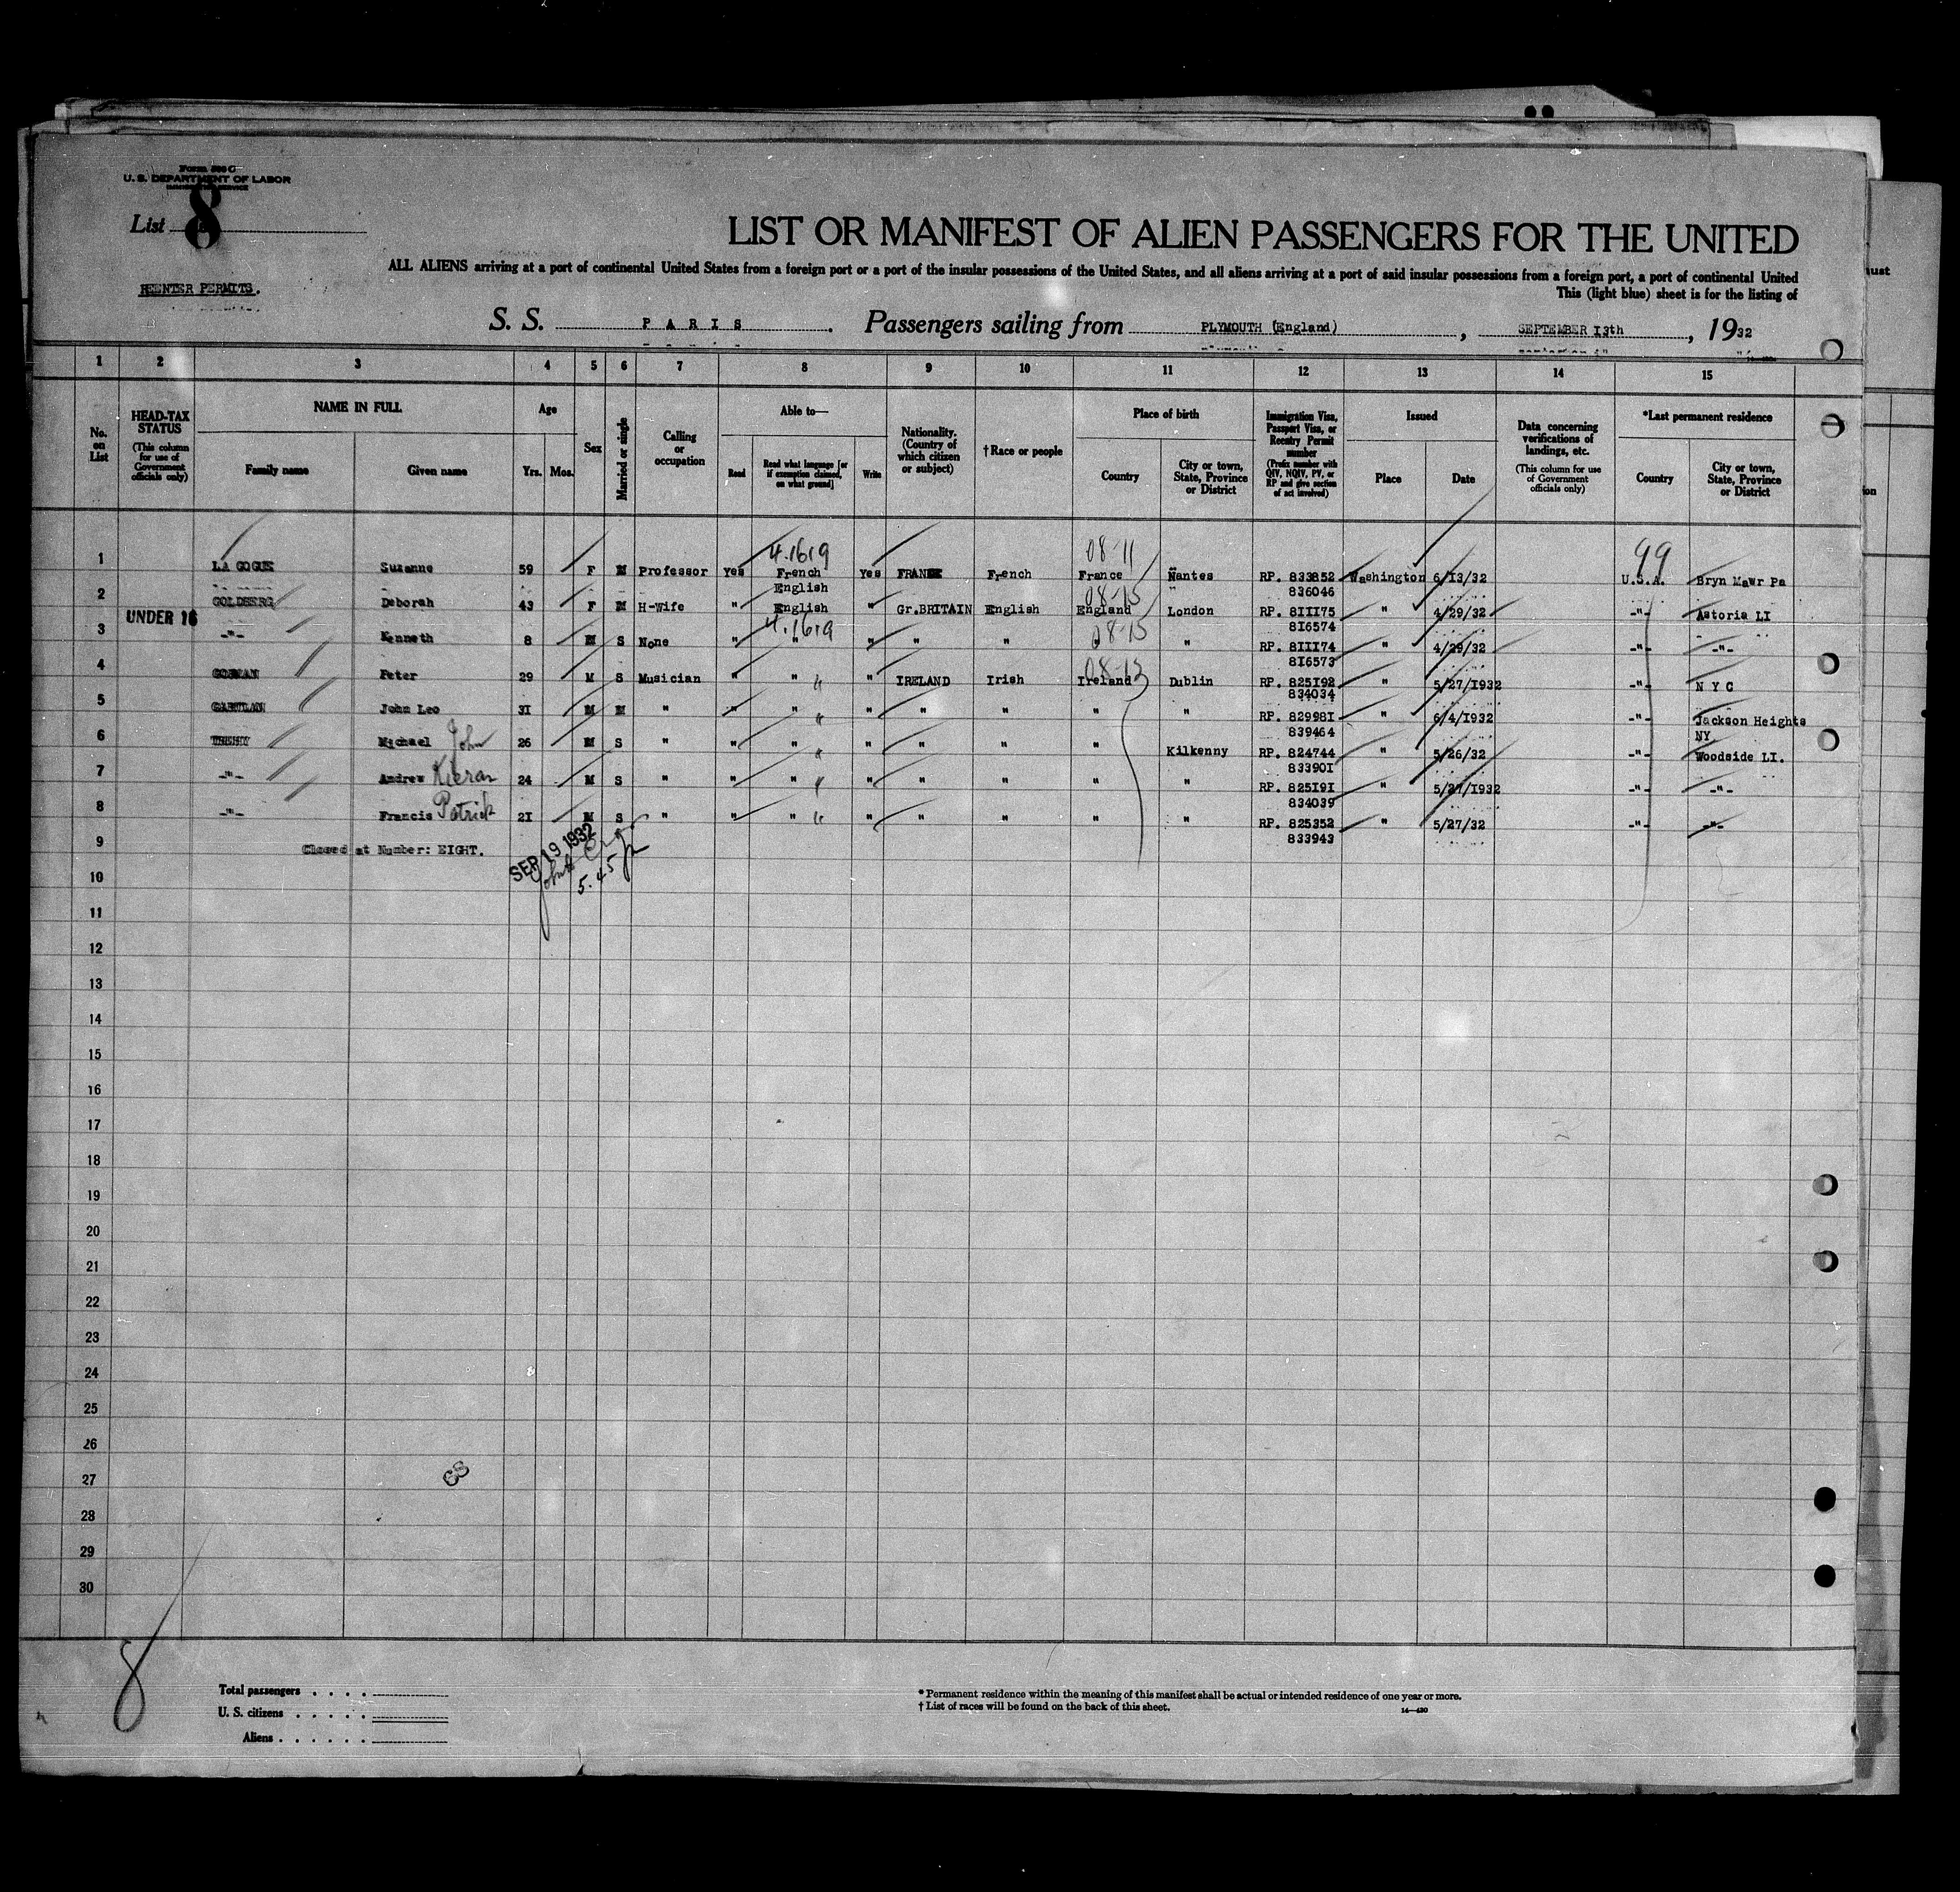 Form 500 C
U. S. DEPARTMENT OF LABOR
List 8
LIST OR MANIFEST OF ALIEN PASSENGERS FOR THE UNITED
ALL ALIENS arriving at a port of continental United States from a foreign port or a port of the insular possessions of the United States, and all aliens arriving at a port of said insular possessions from a foreign port, a port of continental United
This (light blue) sheet is for the listing of
REENTER PERMITS.
S. S. PARIS. Passengers sailing from PLYMOUTH (England), SEPTEMBER I3th, 1932
1 2 3 4 5 6 7 8 9 10 11 12 13 14 15
No. on List
HEAD-TAX STATUS (This column for use of Government officials only)
NAME IN FULL Family name Given name
Age Yrs. Mos.
Sex
Married or single
Calling or occupation
Able to— Read Read what language [or if exemption claimed, on what ground] Write
Nationality. (Country of which citizen or subject)
† Race or people
Place of birth Country City or town, State, Province or District
Immigration Visa, Passport Visa, or Reentry Permit number (Prefix number with QIV, NQIV, PV, or RP and give section of act involved)
Issued Place Date
Data concerning verifications of landings, etc. (This column for use of Government officials only)
*Last permanent residence Country City or town, State, Province or District
4.1619 08-11 99
1 LA GOGUE Suzanne 59 F M Professor Yes French Yes FRANCE French France Nantes RP. 833852 Washington 6/I3/32 U.S.A. Bryn Mawr Pa
English 836046
08-15
2 GOLDBERG Deborah 43 F M H-Wife " English " Gr.BRITAIN English England London RP. 8III75 " 4/29/32 -"- Astoria LI
UNDER 16 4.1619 08-15 8I6574
3 -"- Kenneth 8 M S None " " " " " " " RP. 8III74 " 4/29/32 -"- -"-
08-13 8I6573
4 GORMAN Peter 29 M S Musician " " " IRELAND Irish Ireland Dublin RP. 825I92 " 5/27/I932 -"- N Y C
834034
5 GARTLAN John Leo 3I M M " " " " " " " " RP. 82998I " 6/4/I932 -"- Jackson Heights NY
839464
6 Michael John 26 M S " " " " " " " Kilkenny RP. 824744 " 5/26/32 -"- Woodside LI.
83390I
7 -"- Andrew Kieran 24 M S " " " " " " " " RP. 825I9I " 5/27/I932 -"- -"-
834039
8 -"- Francis Patrick 2I M S " " " " " " " " RP. 825352 " 5/27/32 -"- -"-
833943
9 Closed at Number: EIGHT.
SEP 19 1932
5.45
10
11
12
13
14
15
16
17
18
19
20
21
22
23
24
25
26
27
28
29
30
8
Total passengers . . . .
U. S. citizens . . . . .
Aliens . . . . . .
* Permanent residence within the meaning of this manifest shall be actual or intended residence of one year or more.
† List of races will be found on the back of this sheet.
14—430